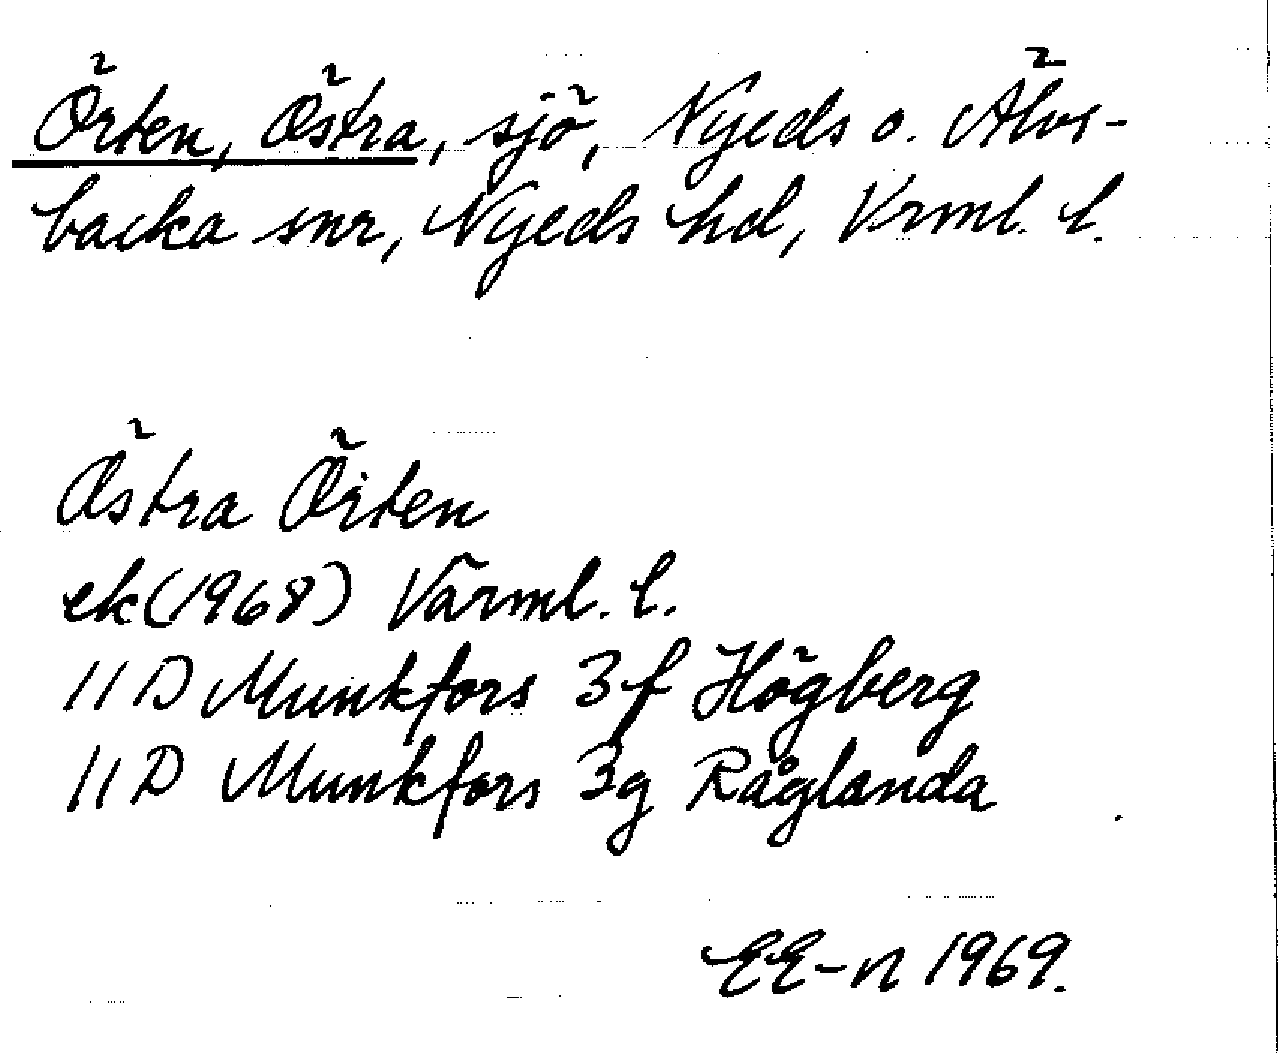 Örten, Östra, sjö, Nyeds o. Älvs-
backa snr, Nyeds hd, Vrml. l.
Östra Örten
ek (1968) Värml. l.
11 D Munkfors 3f Högberg
11 D Munkfors 3g Råglanda
EE-n 1969.